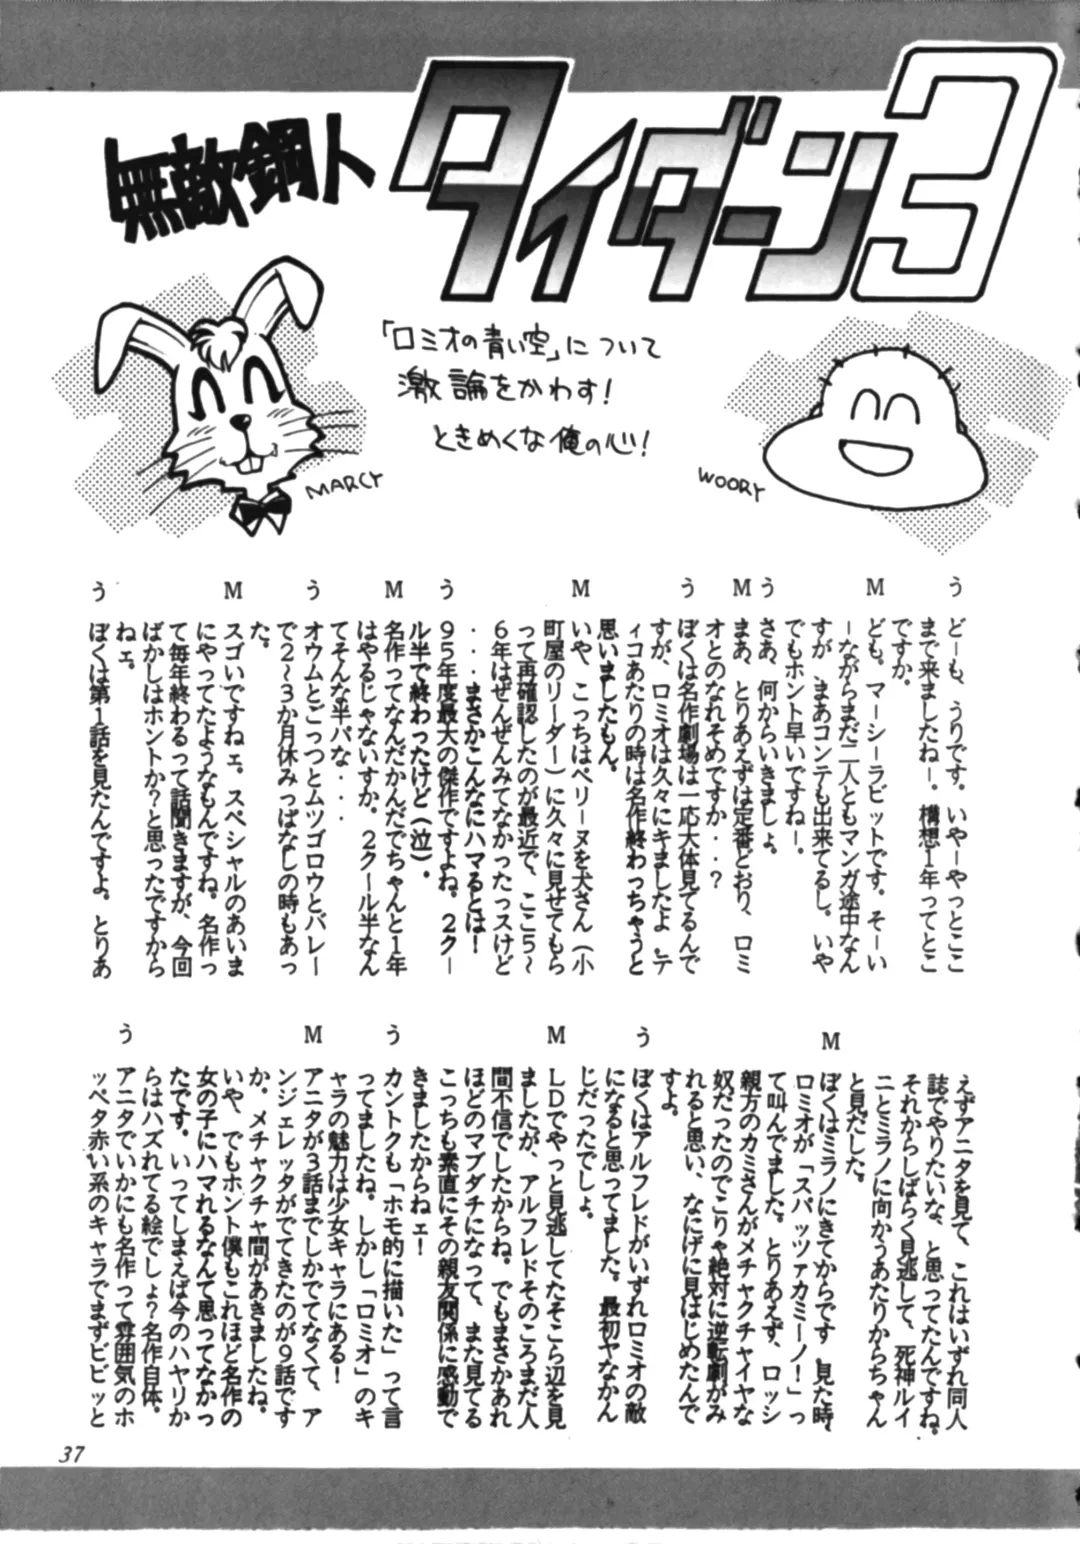 無敵鋼人
タイダーン3
「ロミオの青い空」について
激論をかわす！
ときめくな俺の心！
MARCY
WOORY
う　どーも、うりです。いやーやっとここ
まで来ましたねー。構想1年ってとこ
ですか。
M　ども。マーシーラビットです。そーい
ーながらまだ二人ともマンガ途中なん
すが、まあコンテも出来てるし。いや
でもホント早いですねー。
う　さあ、何からいきましょ。
M　まあ、とりあえずは定番どおり、ロミ
オとのなれそめですか・・？
う　ぼくは名作劇場は一応大体見てるんで
すが、ロミオは久々にキましたよ。テ
ィコあたりの時は名作終わっちゃうと
思いましたもん。
M　いや、こっちはペリーヌを犬さん（小
町屋のリーダー）に久々に見せてもら
って再確認したのが最近で、ここ5〜
6年はぜんぜんみてなかったっスけど
・・・まさかこんなにハマるとは！
う　95年度最大の傑作ですよね。2クー
ル半で終わったけど（泣）。
M　名作ってなんだかんだでちゃんと1年
はやるじゃないすか。2クール半なん
てそんな半パな・・・
う　オウムとごっつとムツゴロウとバレー
で2〜3か月休みっぱなしの時もあっ
た。
M　スゴいですねェ。スペシャルのあいま
にやってたようなもんですね。名作っ
て毎年終わるって話聞きますが、今回
ばかしはホントか？と思ったですから
ねェ。
う　ぼくは第1話を見たんですよ。とりあ
えずアニタを見て、これはいずれ同人
誌でやりたいな、と思ってたんですね。
それからしばらく見逃して、死神ルイ
ニとミラノに向かうあたりからちゃん
と見だした。
M　ぼくはミラノにきてからです。見た時、
ロミオが「スパッツァカミーノ！」っ
て叫んでました。とりあえず、ロッシ
親方のカミさんがメチャクチャイヤな
奴だったのでこりゃ絶対に逆転劇がみ
れると思い、なにげに見はじめたんで
すよ。
う　ぼくはアルフレドがいずれロミオの敵
になると思ってました。最初ヤなかん
じだったでしょ。
M　LDでやっと見逃してたそこら辺を見
ましたが、アルフレドそのころまだ人
間不信でしたからね。でもまさかあれ
ほどのマブダチになって、また見てる
こっちも素直にその親友関係に感動で
きましたからねェ！
う　カントクも「ホモ的に描いた」って言
ってましたね。しかし「ロミオ」のキ
ャラの魅力は少女キャラにある！
M　アニタが3話までしかでてなくて、ア
ンジェレッタがでてきたのが9話です
か。メチャクチャ間があきましたね。
いや、でもホント僕もこれほど名作の
女の子にハマれるなんて思ってなかっ
たです。いってしまえば今のハヤリか
らはハズれてる絵でしょ？名作自体。
う　アニタでいかにも名作って雰囲気のホ
ッペタ赤い系のキャラでまずビビッと
37